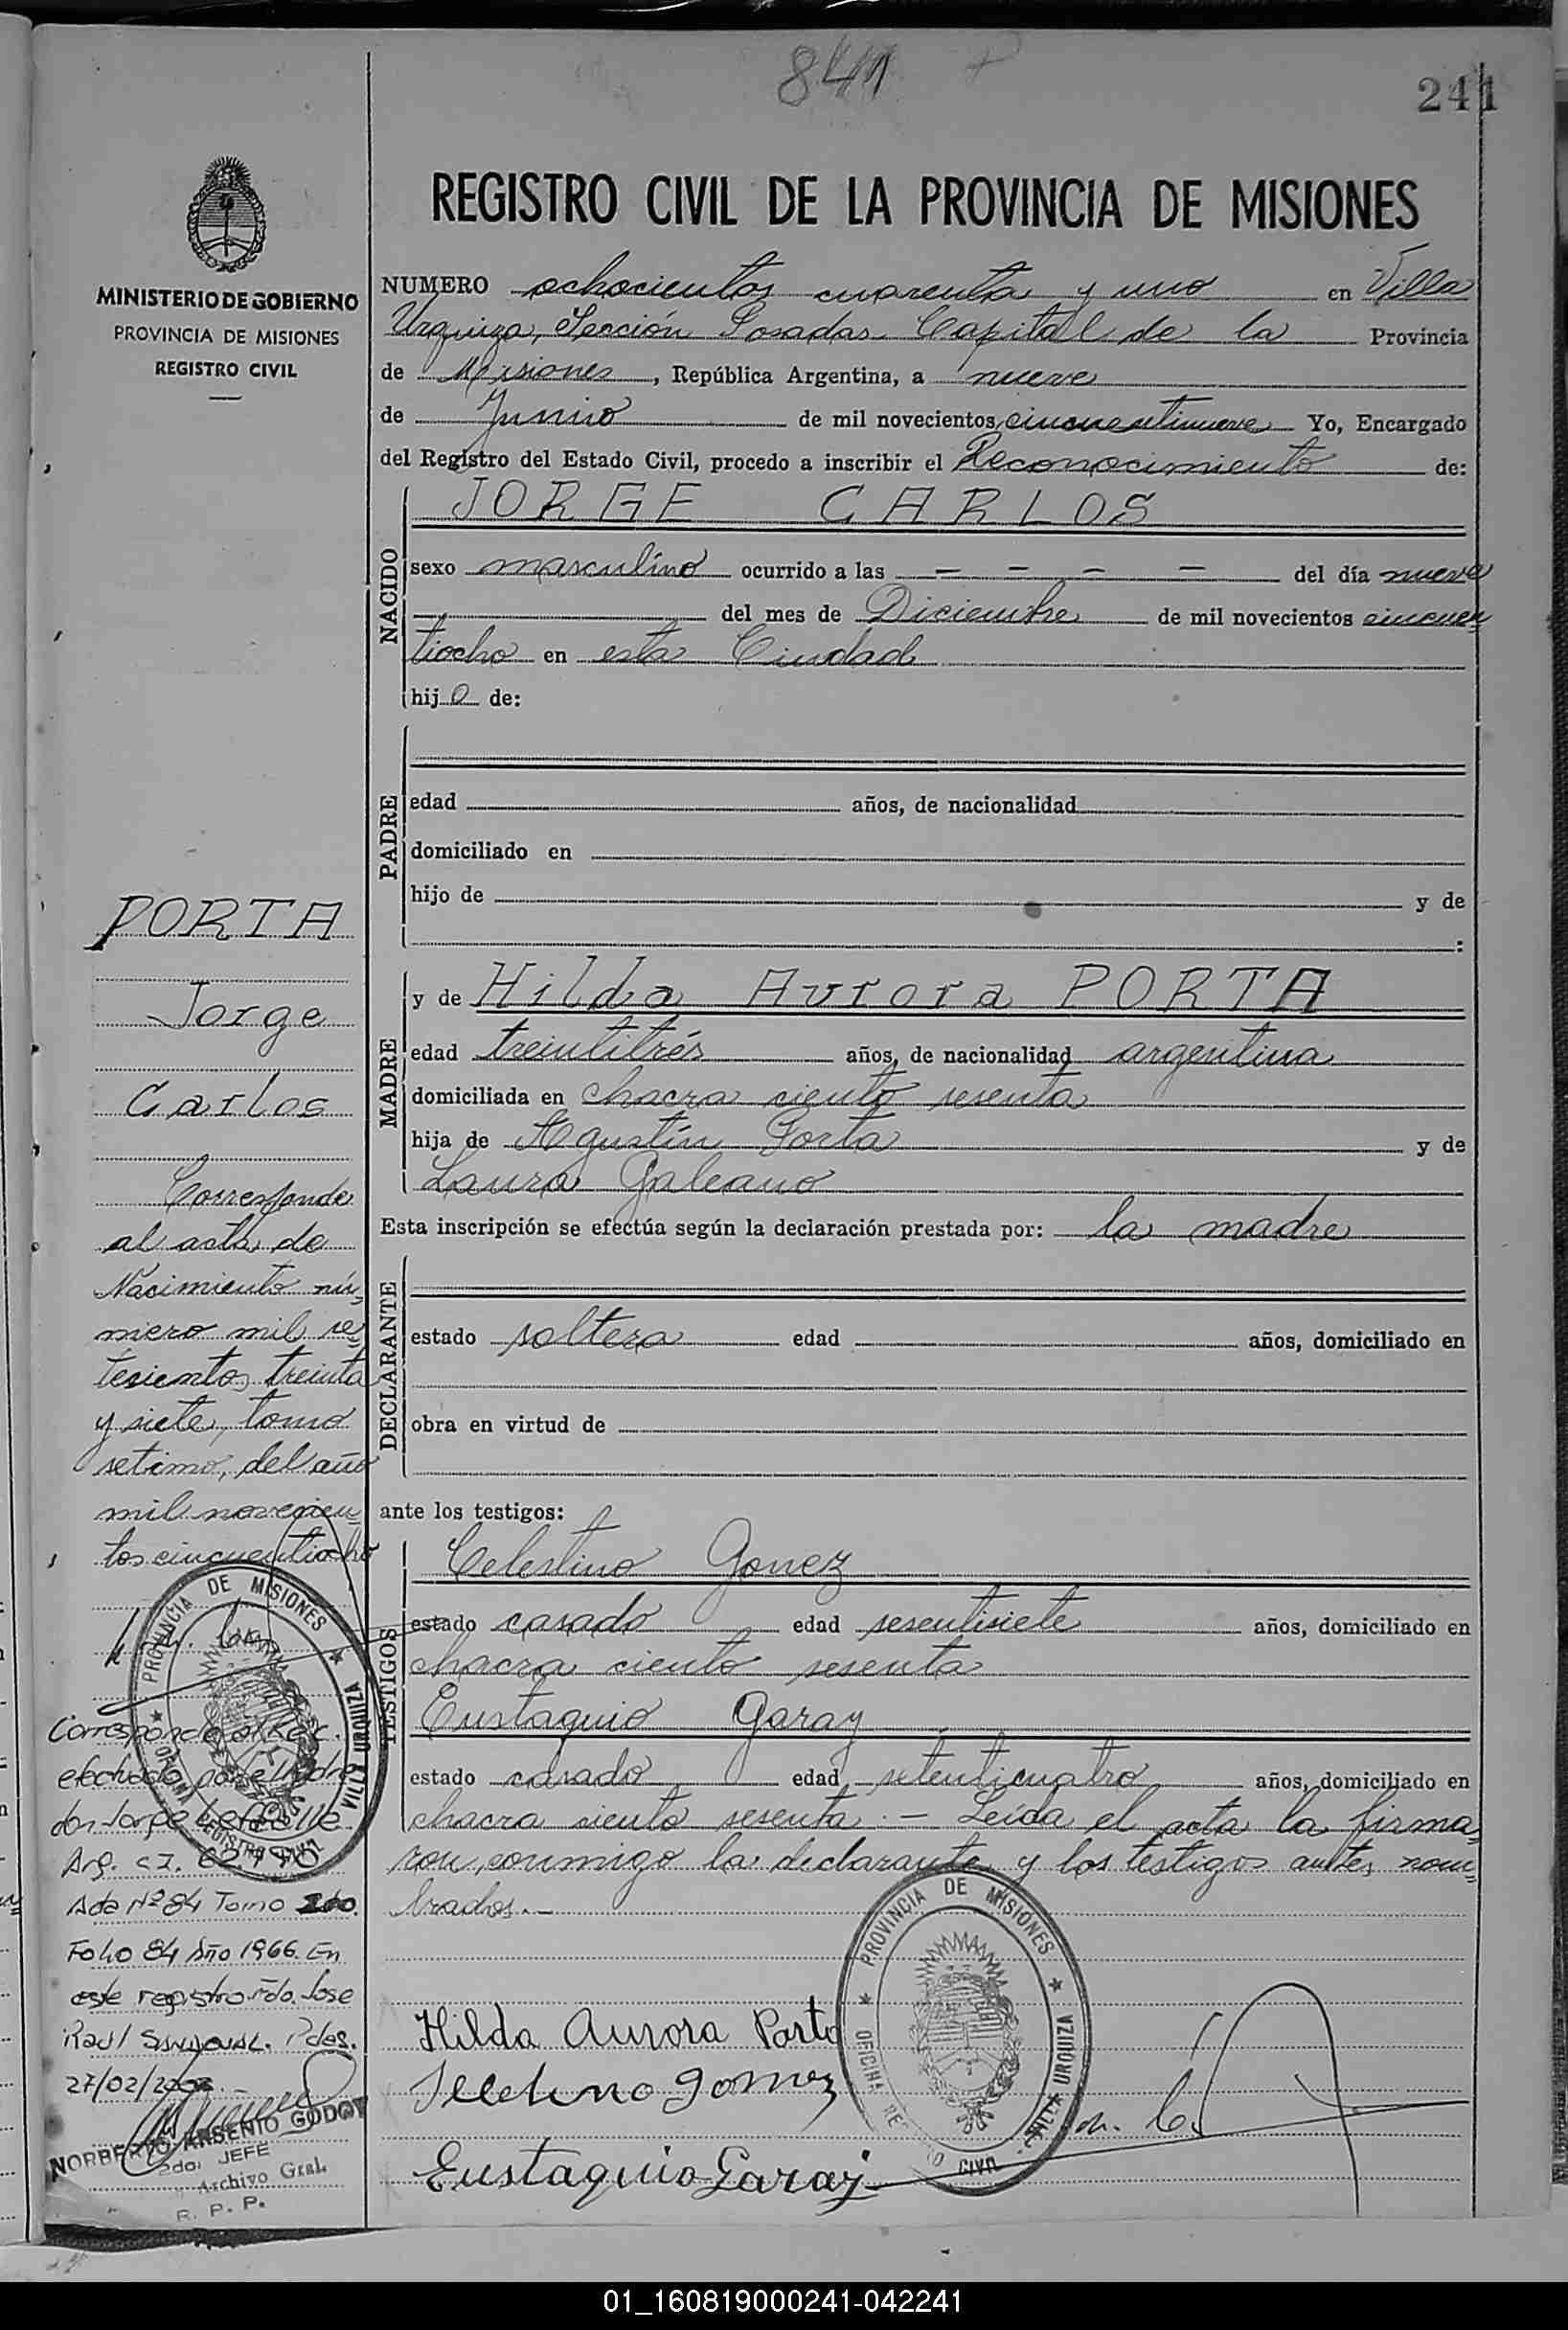 841
241
MINISTERIO DE GOBIERNO
PROVINCIA DE MISIONES
REGISTRO CIVIL
REGISTRO CIVIL DE LA PROVINCIA DE MISIONES
NUMERO ochocientos cuarenta y uno en Villa
Urquiza, Sección Posadas Capital de la Provincia
de Misiones, República Argentina, a nueve
de Junio de mil novecientos cincuentinueve Yo, Encargado
del Registro del Estado Civil, procedo a inscribir el Reconocimiento de:
NACIDO
JORGE CARLOS
sexo masculino ocurrido a las — — — — del día nueve
del mes de Diciembre de mil novecientos cincuen-
tiocho en esta Ciudad
hijo de:
PADRE
edad años, de nacionalidad
domiciliado en
hijo de y de
:
MADRE
y de Hilda Aurora PORTA
edad treintitrés años, de nacionalidad argentina
domiciliada en chacra ciento sesenta
hija de Agustín Porta y de
Laura Galeano
Esta inscripción se efectúa según la declaración prestada por: la madre
DECLARANTE
estado soltera edad años, domiciliado en
obra en virtud de
ante los testigos:
TESTIGOS
Celestino Gomez
estado casado edad sesentisiete años, domiciliado en
chacra ciento sesenta
Eustaquio Garay
estado casado edad setenticuatro años, domiciliado en
chacra ciento sesenta.— Leída el acta la firma-
ron conmigo la declarante y los testigos antes nom-
brados.—
Hilda Aurora Porta
Gomez
Eustaquio Garay
PROVINCIA DE MISIONES
OFICINA REGISTRO CIVIL
VILLA URQUIZA
PORTA
Jorge
Carlos
Corresponde
al acta de
Nacimiento nú-
mero mil se-
tesientos treinta
y siete, tomo
setimo, del año
mil novecien-
tos cincuentiocho
PROVINCIA DE MISIONES
OFICINA REGISTRO CIVIL
VILLA URQUIZA
Corresponde al Rec.
efectuado por el Padre
don Jorge
Arg. C.I.
Acta Nº 84 Tomo 2do.
Folio 84 Año 1966. En
este registro rdo. Jose
Raul SANDOVAL. Pdas.
27/02/
NORBERTO ARSENIO GODOY
2do. JEFE
Archivo Gral.
R. P. P.
01_160819000241-042241